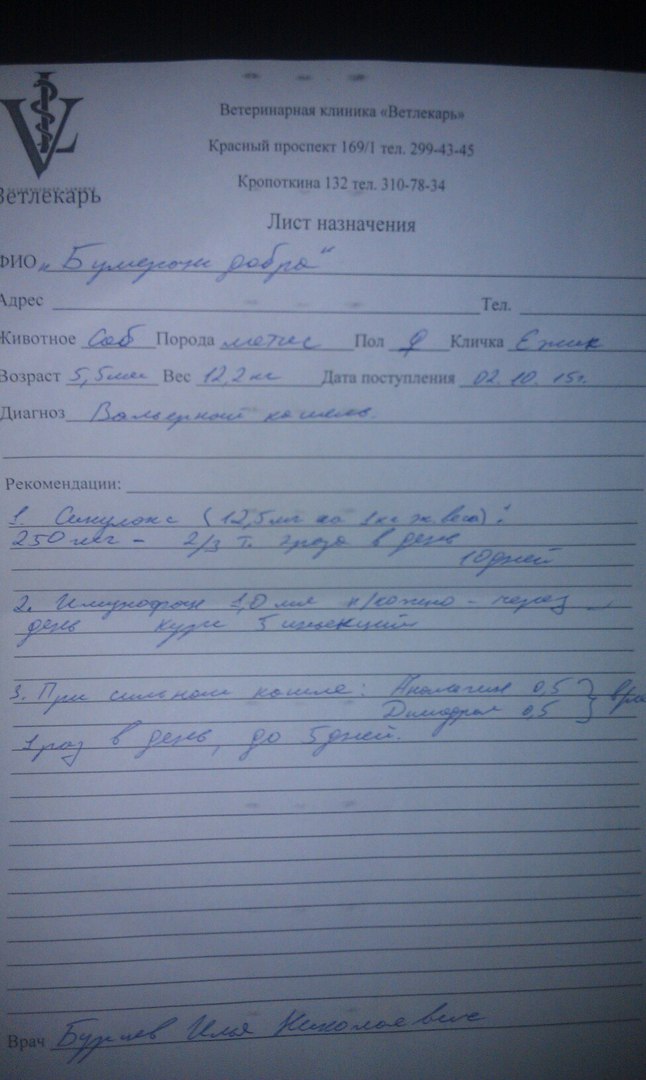 Ветеринарная клиника «Ветлекарь»
Красный проспект 169/1 тел. 299-43-45
Кропоткина 132 тел. 310-78-34
Ветлекарь
Лист назначения
ФИО „Бумеранг добра“
Адрес Тел.
Животное Соб Порода метис Пол ♀ Кличка Ежик
Возраст 5,5мес Вес 12,2 кг Дата поступления 02.10.15г.
Диагноз Вольерный кашель.
Рекомендации:
1. Синулокс (12,5мг на 1кг ж.веса):
250 мг – 2/3 т. 2раза в день
10дней
2. Имунофан 1,0 мл п/кожно – через
день курс 5 инъекций
3. При сильном кашле: Анальгин 0,5 } в/м
Димедрол 0,5
1 раз в день, до 5дней.
Врач Илья Николаевич